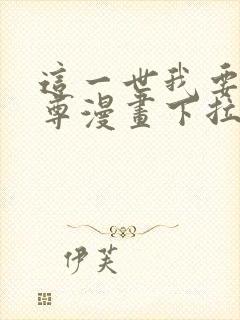 這一世我要
尊漫畫下拉
伊芙